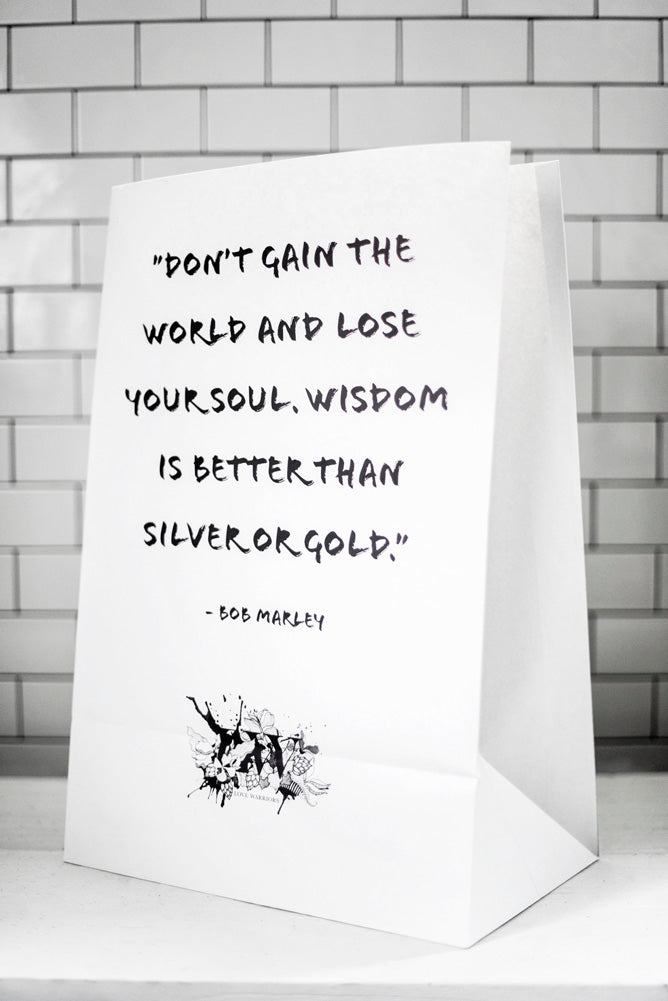 "DON'T GAIN THE
WORLD AND LOSE
YOUR SOUL. WISDOM
IS BETTER THAN
SILVER OR GOLD."
- BOB MARLEY
LOVE WARRIORS